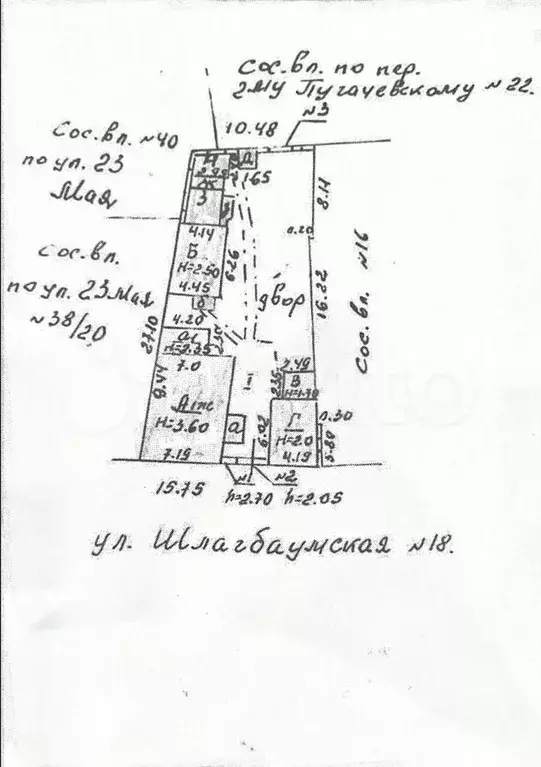 Сос. вл. по пер.
2му Пугачевскому №22.
№3
10.48
Сос. вл. №40
по ул. 23
Мая
Д
1.65
Ж
З
8.14
0.20
4.14
Б
Н=2.50
6.26
4.45
Сос. вл.
по ул. 23 Мая
№38/20
двор
16.22
Сос. вл. №16
б
4.20
а1
Н=2.35
27.10
7.0
I
2.49
В
Н=1.70
2.35
9.44
А жс
Н=3.60
а
6.02
Г
Н=2.0
0.30
5.80
7.19
4.19
15.75
№1
h=2.70
№2
h=2.05
ул. Шлагбаумская №18.